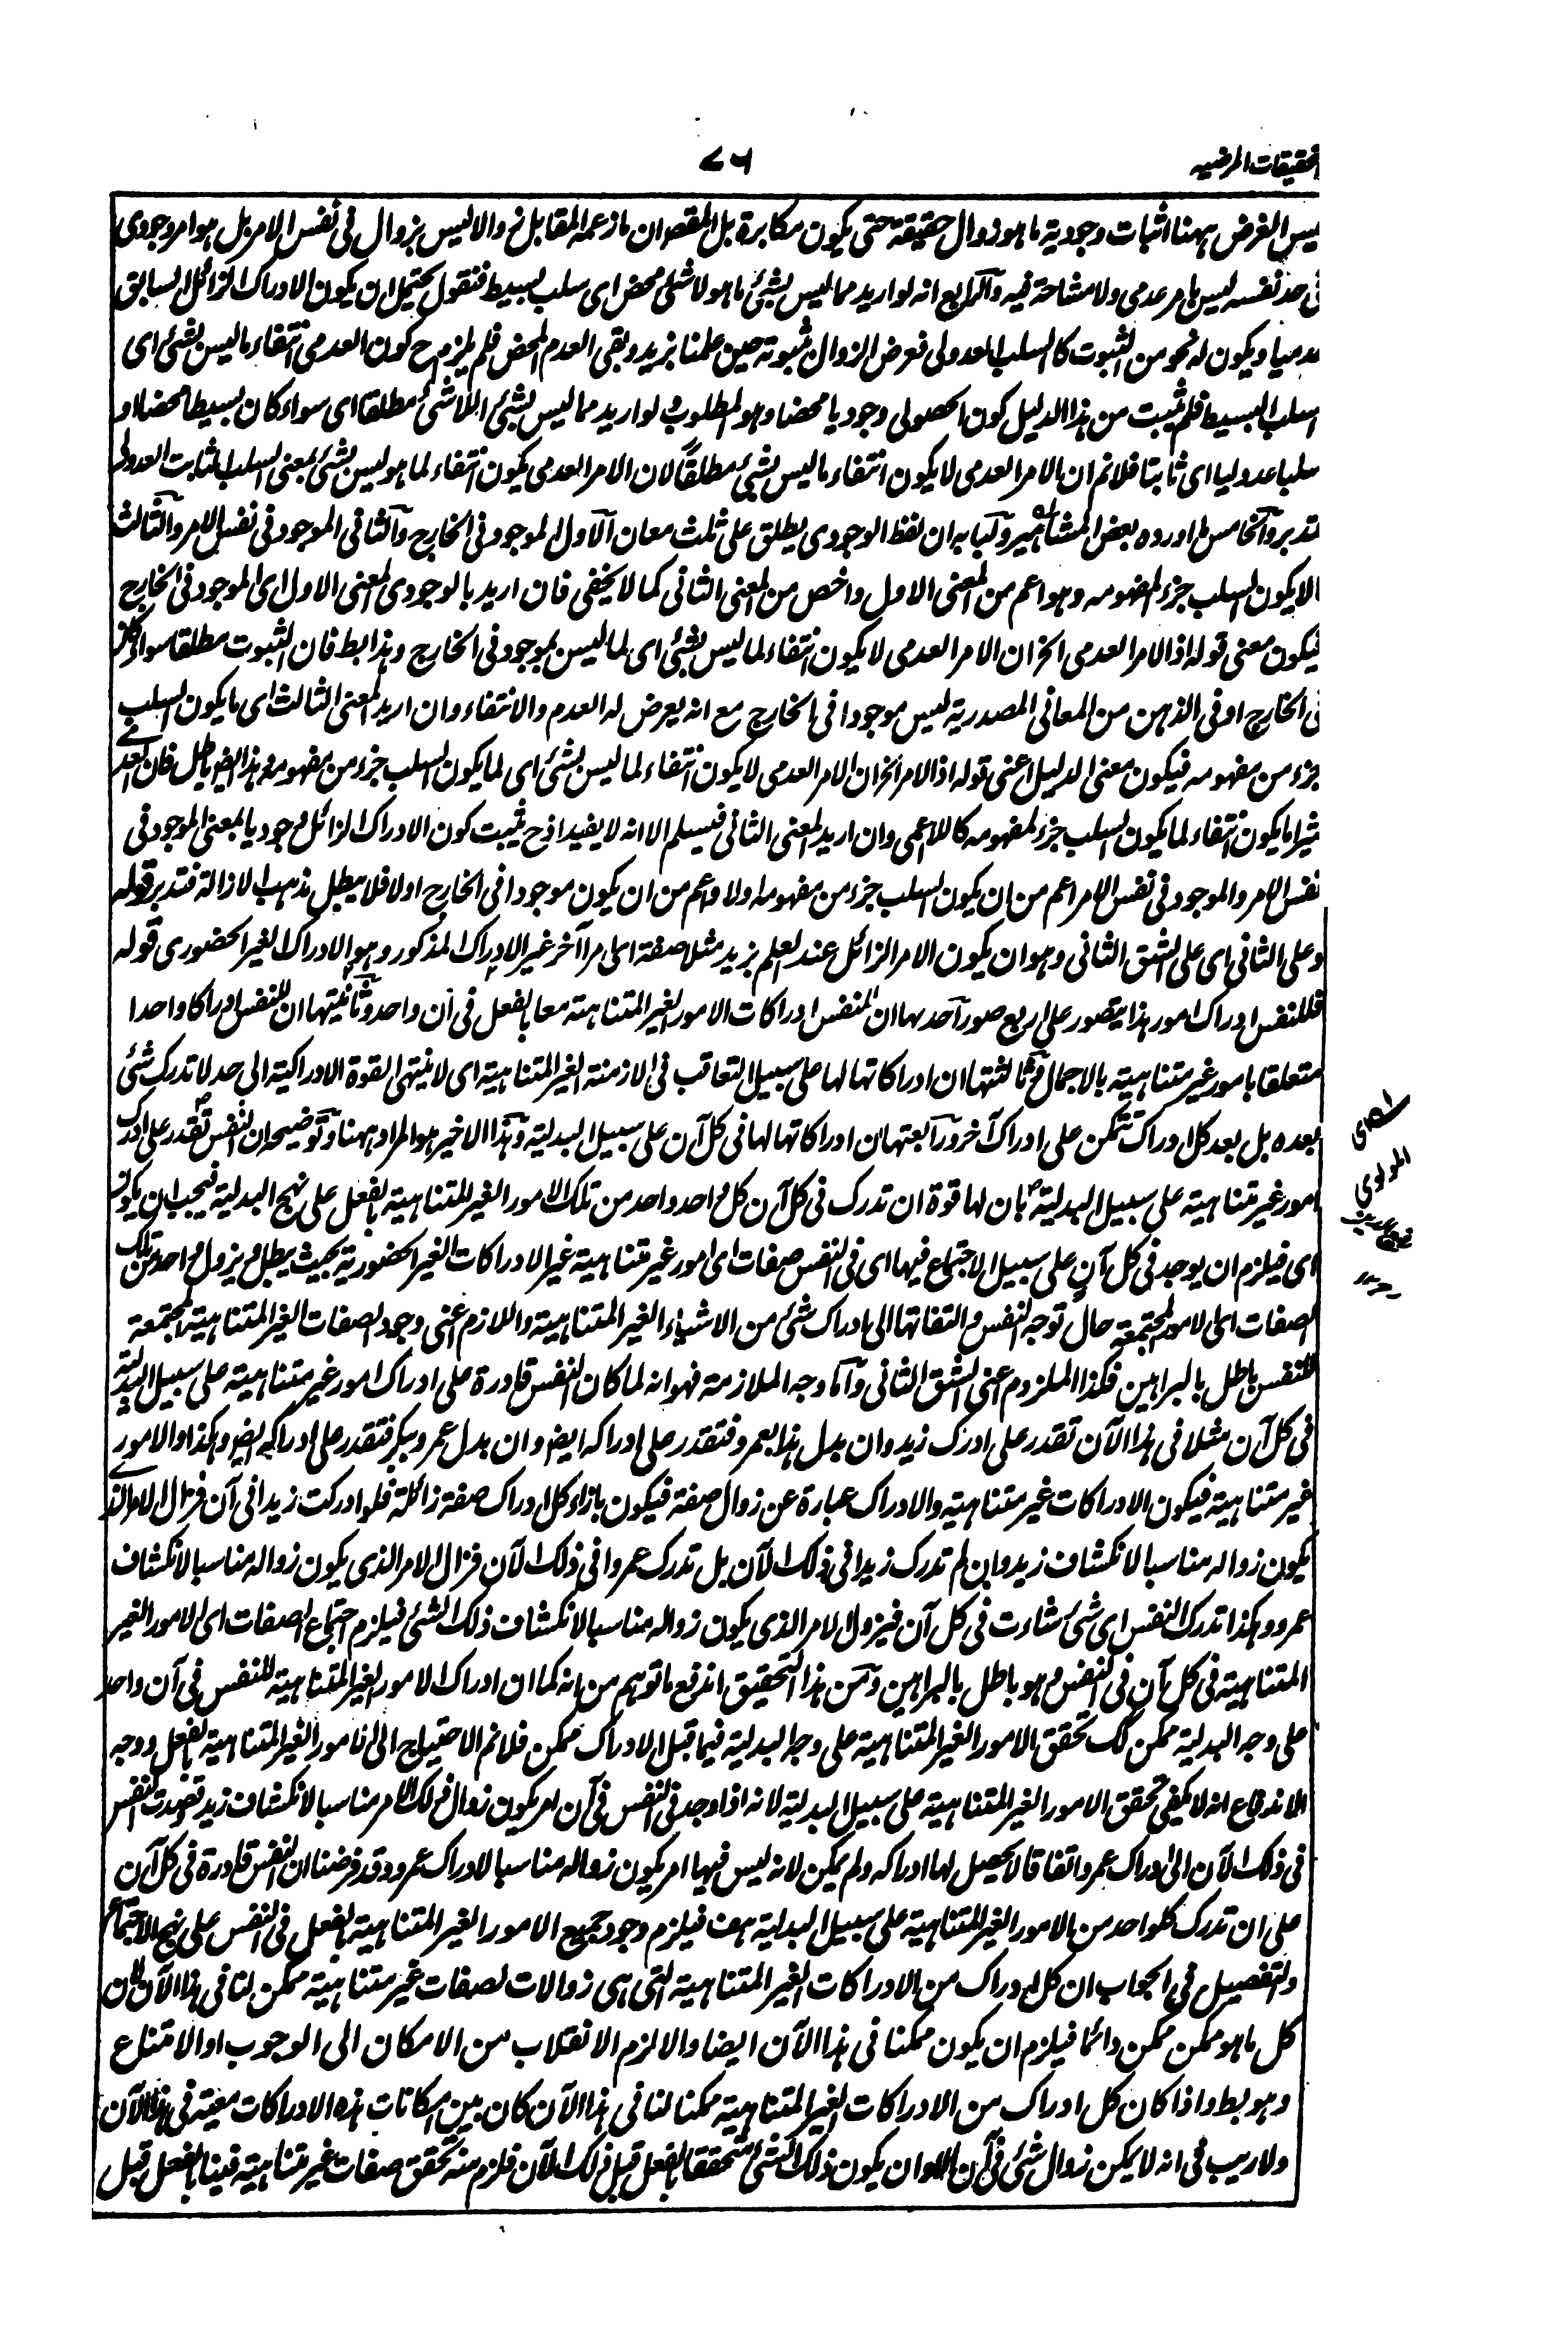 التحقيقات المرضيه
٧٦
ليس الغرض ههنا اثبات وجودية ما هو زوال حقيقة حتى يكون مكابرة بل المقصران ما زعمه المقابل والا ليس بزوال فى نفس الامر بل هو امر وجودى
فى حد نفسه ليس بامر عدمى ولا مشاحة فيه والرابع انه لو اريد مما ليس بشئ ما هو لا شئ محض اى سلب بسيط فنقول يحتمل ان يكون الادراك الزائل السابق
عدميا ويكون له نحو من الثبوت كالسلب العدولى فعرض الزوال ثبوته حين علمنا بزيد وبقى العدم المحض فلم يلزم ح كون العدمى انتفاء ما ليس بشئ اى
السلب البسيط فلم يثبت من هذا الدليل كون الحصولى وجوديا محضا وهو المطلوب ولو اريد مما ليس بشئ اللاشئ مطلقا اى سواء كان بسيطا محضا او
سلبا عدوليا اى ثابتا فلانم ان الامر العدمى لا يكون انتفاء ما ليس بشئ مطلقا لان الامر العدمى يكون انتفاء لما هو ليس بشئ بمعنى السلب الثابت العدولى
فتدبر والخامس ما اورده بعض المشاهير وآكبابه ان لفظ الوجودى يطلق على ثلث معان الاول الموجود فى الخارج والثانى الموجود فى نفس الامر والثالث
الا يكون السلب جزء لمفهومه وهو اعم من المعنى الاول واخص من المعنى الثانى كما لا يخفى فان اريد بالوجودى المعنى الاول اى الموجود فى الخارج
فيكون معنى قوله اذ الامر العدمى الخ ان الامر العدمى لا يكون انتفاء لما ليس بشئ اى لما ليس بموجود فى الخارج وهذا بط فان الثبوت مطلقا سواء كان
فى الخارج او فى الذهن من المعانى المصدرية ليس موجودا فى الخارج مع انه يعرض له العدم والانتفاء وان اريد المعنى الثالث اى ما يكون السلب
جزء من مفهومه فيكون معنى الدليل اعنى قوله اذ الامر الخ ان الامر العدمى لا يكون انتفاء لما ليس بشئ اى لما يكون السلب جزء من مفهومه وهذا ايض باطل فان العدمى
كثيرا ما يكون انتفاء لما يكون السلب جزء لمفهومه كاللااعمى وان اريد المعنى الثانى فيسلم الا انه لا يفيد اذ ح يثبت كون الادراك الزائل وجوديا بالمعنى الموجود فى
نفس الامر والموجود فى نفس الامر اعم من ان يكون السلب جزء من مفهومه او لا واعم من ان يكون موجودا فى الخارج او لا فلا يبطل مذهب الازالة فتدبر قوله
وعلى الثانى اى على الشق الثانى وهو ان يكون الامر الزائل عند العلم بزيد مثلا صفة اى امرا آخر غير الادراك المذكور وهو الادراك الغير الحضورى قوله
فللنفس ادراك امور هذا يتصور على اربع صور آحدها ان للنفس ادراكات الامور الغير المتناهية معا بالفعل فى آن واحد وثانيتها ان للنفس ادراكا واحدا
متعلقا بامور غير متناهية بالاجمال وثالثتها ان ادراكاتها لها على سبيل التعاقب فى الازمنة الغير المتناهية اى لا ينتهى القوة الادراكية الى حد لا تدرك شئ
بعده بل بعد كل ادراك تتمكن على ادراك آخر ورابعتها ان ادراكاتها لها فى كل آن على سبيل البدلية وهذا الاخير هو المراد ههنا وتوضيحه ان النفس تقدر على ادراك
امور غير متناهية على سبيل البدلية بان لها قوة ان تدرك فى كل آن كل واحد واحد من تلك الامور الغير المتناهية بالفعل على نهج البدلية فيجب ان يكون
اى فيلزم ان يوجد فى كل آن على سبيل الاجتماع فيها اى فى النفس صفات اى امور غير متناهية غير الادراكات الغير الحضورية بحيث يبطل ويزول واحد من تلك
الصفات اى الامور المجتمعة حال توجه النفس والتفاتها الى ادراك شئ من الاشياء الغير المتناهية واللازم اعنى وجود الصفات الغير المتناهية المجتمعة
للنفس باطل بالبراهين فكذا الملزوم اعنى الشق الثانى وآما وجه الملازمة فهو انه لما كان النفس قادرة على ادراك امور غير متناهية على سبيل البدلية
فى كل آن مثلا فى هذا الآن تقدر على ادراك زيد وان بدل هذا بعمرو فتقدر على ادراكه ايض وان بدل عمرو ببكر فتقدر على ادراكه ايض وهكذا والامور
غير متناهية فيكون الادراكات غير متناهية والادراك عبارة عن زوال صفة فيكون بازاء كل ادراك صفة زائلة فلو ادركت زيدا فى آن فزال الامر الذى
يكون زواله مناسبا لانكشاف زيد وان لم تدرك زيدا فى ذلك الآن بل تدرك عمروا فى ذلك الآن فزال الامر الذى يكون زواله مناسبا لانكشاف
عمرو وهكذا تدرك النفس اى شئ شاءت فى كل آن فيزول الامر الذى يكون زواله مناسبا لانكشاف ذلك الشئ فيلزم اجتماع الصفات اى الامور الغير
المتناهية فى كل آن فى النفس وهو باطل بالبراهين ومن هذا التحقيق اندفع ما توهم من انه كما ان ادراك الامور الغير المتناهية للنفس فى آن واحد
على وجه البدلية ممكن كك تحقق الامور الغير المتناهية على وجه البدلية فيما قبل الادراك ممكن فلانم الاحتياج الى الامور الغير المتناهية بالفعل ووجه
الاندفاع انه لا يكفى تحقق الامور الغير المتناهية على سبيل البدلية لانه اذا وجد فى النفس فى آن امر يكون زوال ذلك الامر مناسبا لانكشاف زيد فقصدت النفس
فى ذلك الآن الى ادراك عمرو اتفاقا لا يحصل لها ادراكه ولم يمكن لانه ليس فيها امر يكون زواله مناسبا لادراك عمرو وقد فرضنا ان النفس قادرة فى كل آن
على ان تدرك كلواحد من الامور الغير المتناهية على سبيل البدلية هف فيلزم وجود جميع الامور الغير المتناهية بالفعل فى النفس على نهج الاجتماع
والتفصيل فى الجواب ان كل ادراك من الادراكات الغير المتناهية التى هى زوالات لصفات غير متناهية ممكن لنا فى هذا الآن لان
كل ما هو ممكن ممكن دائما فيلزم ان يكون ممكنا فى هذا الآن ايضا والا لزم الانقلاب من الامكان الى الوجوب او الامتناع
وهو بط واذا كان كل ادراك من الادراكات الغير المتناهية ممكنا لنا فى هذا الآن كان بين امكانات هذه الادراكات معية فى هذا الآن
ولا ريب فى انه لا يمكن زوال شئ فى آن الا وان يكون ذلك الشئ متحققا بالفعل قبل ذلك الآن فلزم منه تحقق صفات غير متناهية فينا بالفعل قبل
اى
المولوى